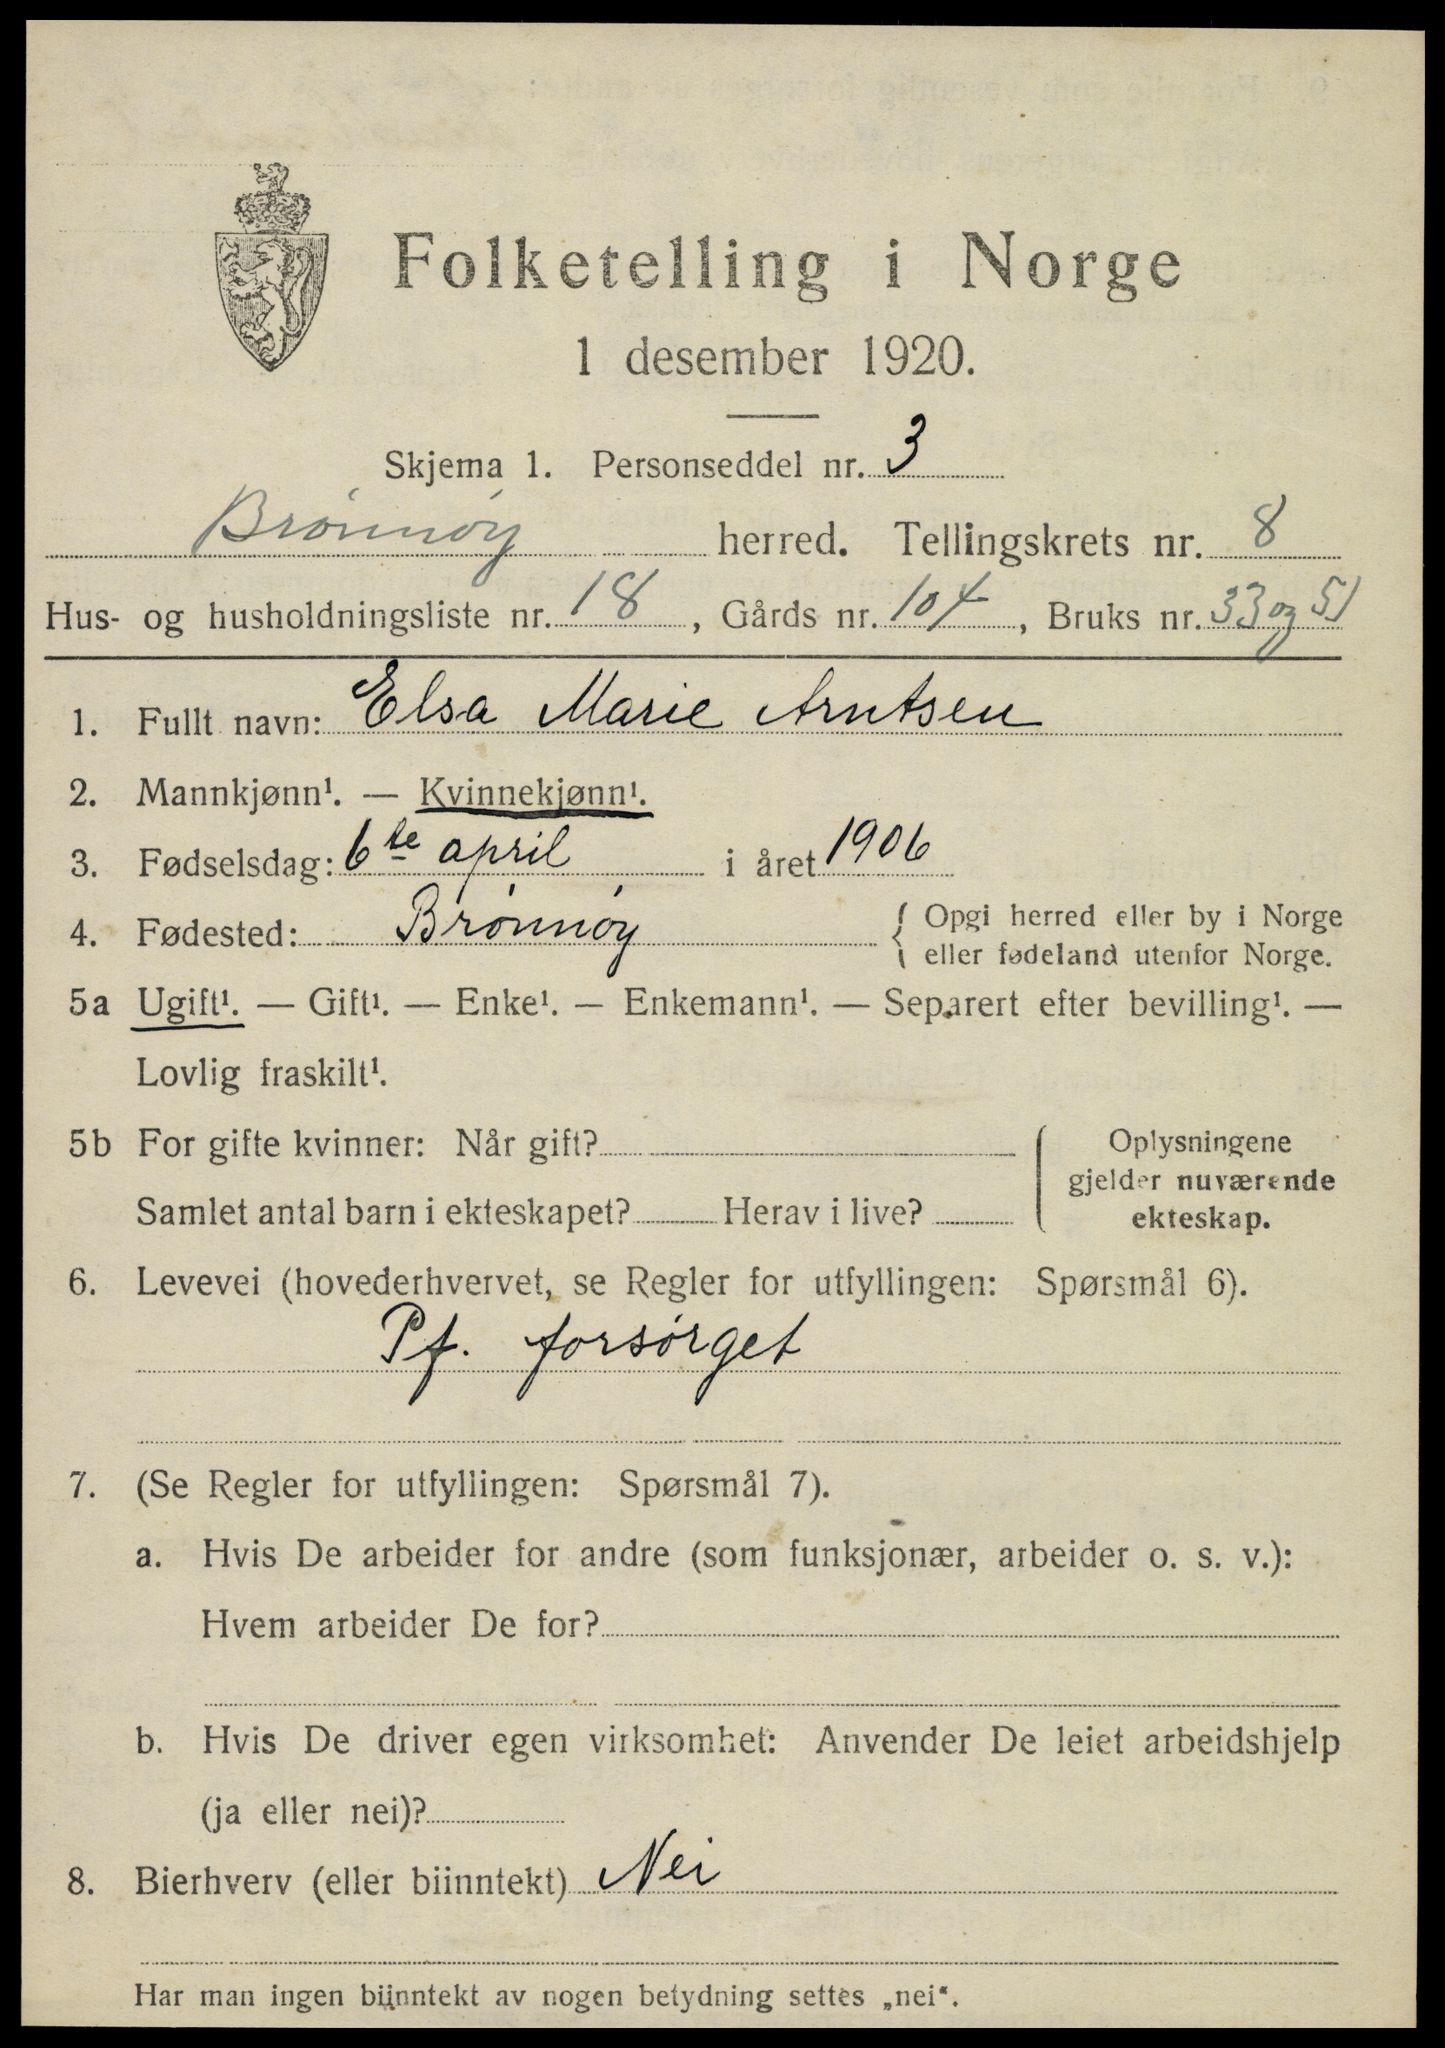 Folketelling i Norge
1 desember 1920.
Skjema 1. Personseddel nr. 3
Brønnøy herred. Tellingskrets nr. 8
Hus- og husholdningsliste nr. 18, Gårds nr. 104, Bruks nr. 33 og 51
1. Fullt navn: Elsa Marie Arntsen
2. Mannkjønn¹. — Kvinnekjønn¹.
3. Fødselsdag: 6te april i året 1906
4. Fødested: Brønnøy { Opgi herred eller by i Norge
eller fødeland utenfor Norge.
5a Ugift¹. — Gift¹. — Enke¹. — Enkemann¹. — Separert efter bevilling¹. —
Lovlig fraskilt¹.
5b For gifte kvinner: Når gift?
Samlet antal barn i ekteskapet? Herav i live?
Oplysningene
gjelder nuværende
ekteskap.
6. Levevei (hovederhvervet, se Regler for utfyllingen: Spørsmål 6).
Pf. forsørget
7. (Se Regler for utfyllingen: Spørsmål 7).
a. Hvis De arbeider for andre (som funksjonær, arbeider o. s. v.):
Hvem arbeider De for?
b. Hvis De driver egen virksomhet: Anvender De leiet arbeidshjelp
(ja eller nei)?
8. Bierhverv (eller biinntekt) Nei
Har man ingen biinntekt av nogen betydning settes „nei“.